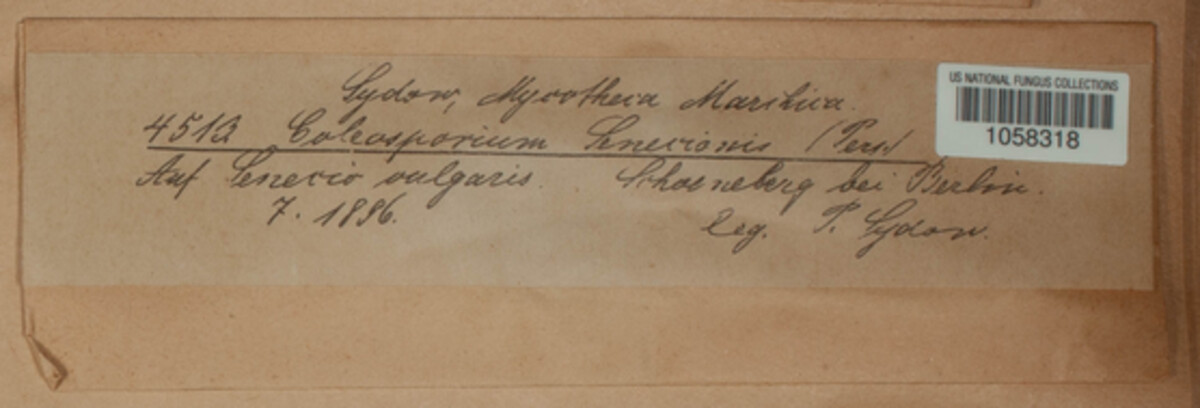 Sydow, Mycotheca Marchica.
US NATIONAL FUNGUS COLLECTIONS
1058318
4512 Coleosporium Senecionis (Pers.)
Auf Senecio vulgaris. Schoeneberg bei Berlin.
7. 1896. leg. P. Sydow.